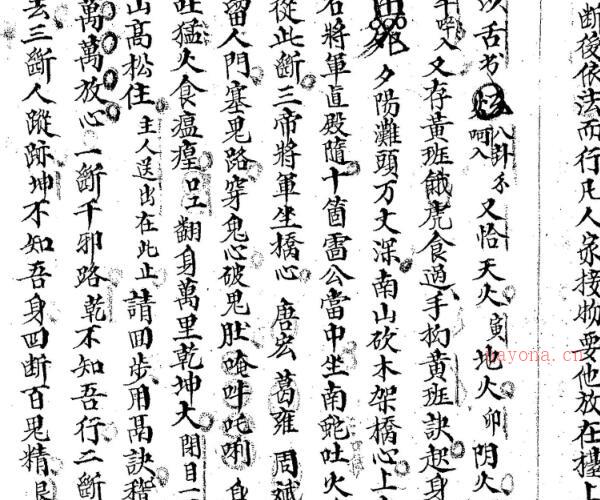 断後依法而行凡人家接物要他放在檯上
以舌书 八卦 呵入 又恰天火寅地火卯阴火
啐入又存黄班餓虎食過手抝黄班訣起身
夕陽灘頭万丈深南山砍木架橋心上
右將軍直殿隨十箇雷公當中坐南蛇吐火
從此断三帝將軍坐橋心唐宏葛雍周斌
留人門塞鬼路穿鬼心破鬼肚唵吽吒唎身
吐猛火食瘟瘟口工翻身萬里乾坤大闭目一
山高松住主人送出在此止請回步用鬲訣
萬萬放心一斷千邪路乾不知吾行二斷
去三斷人蹤跡坤不知吾身四斷百鬼精
nayona.cn